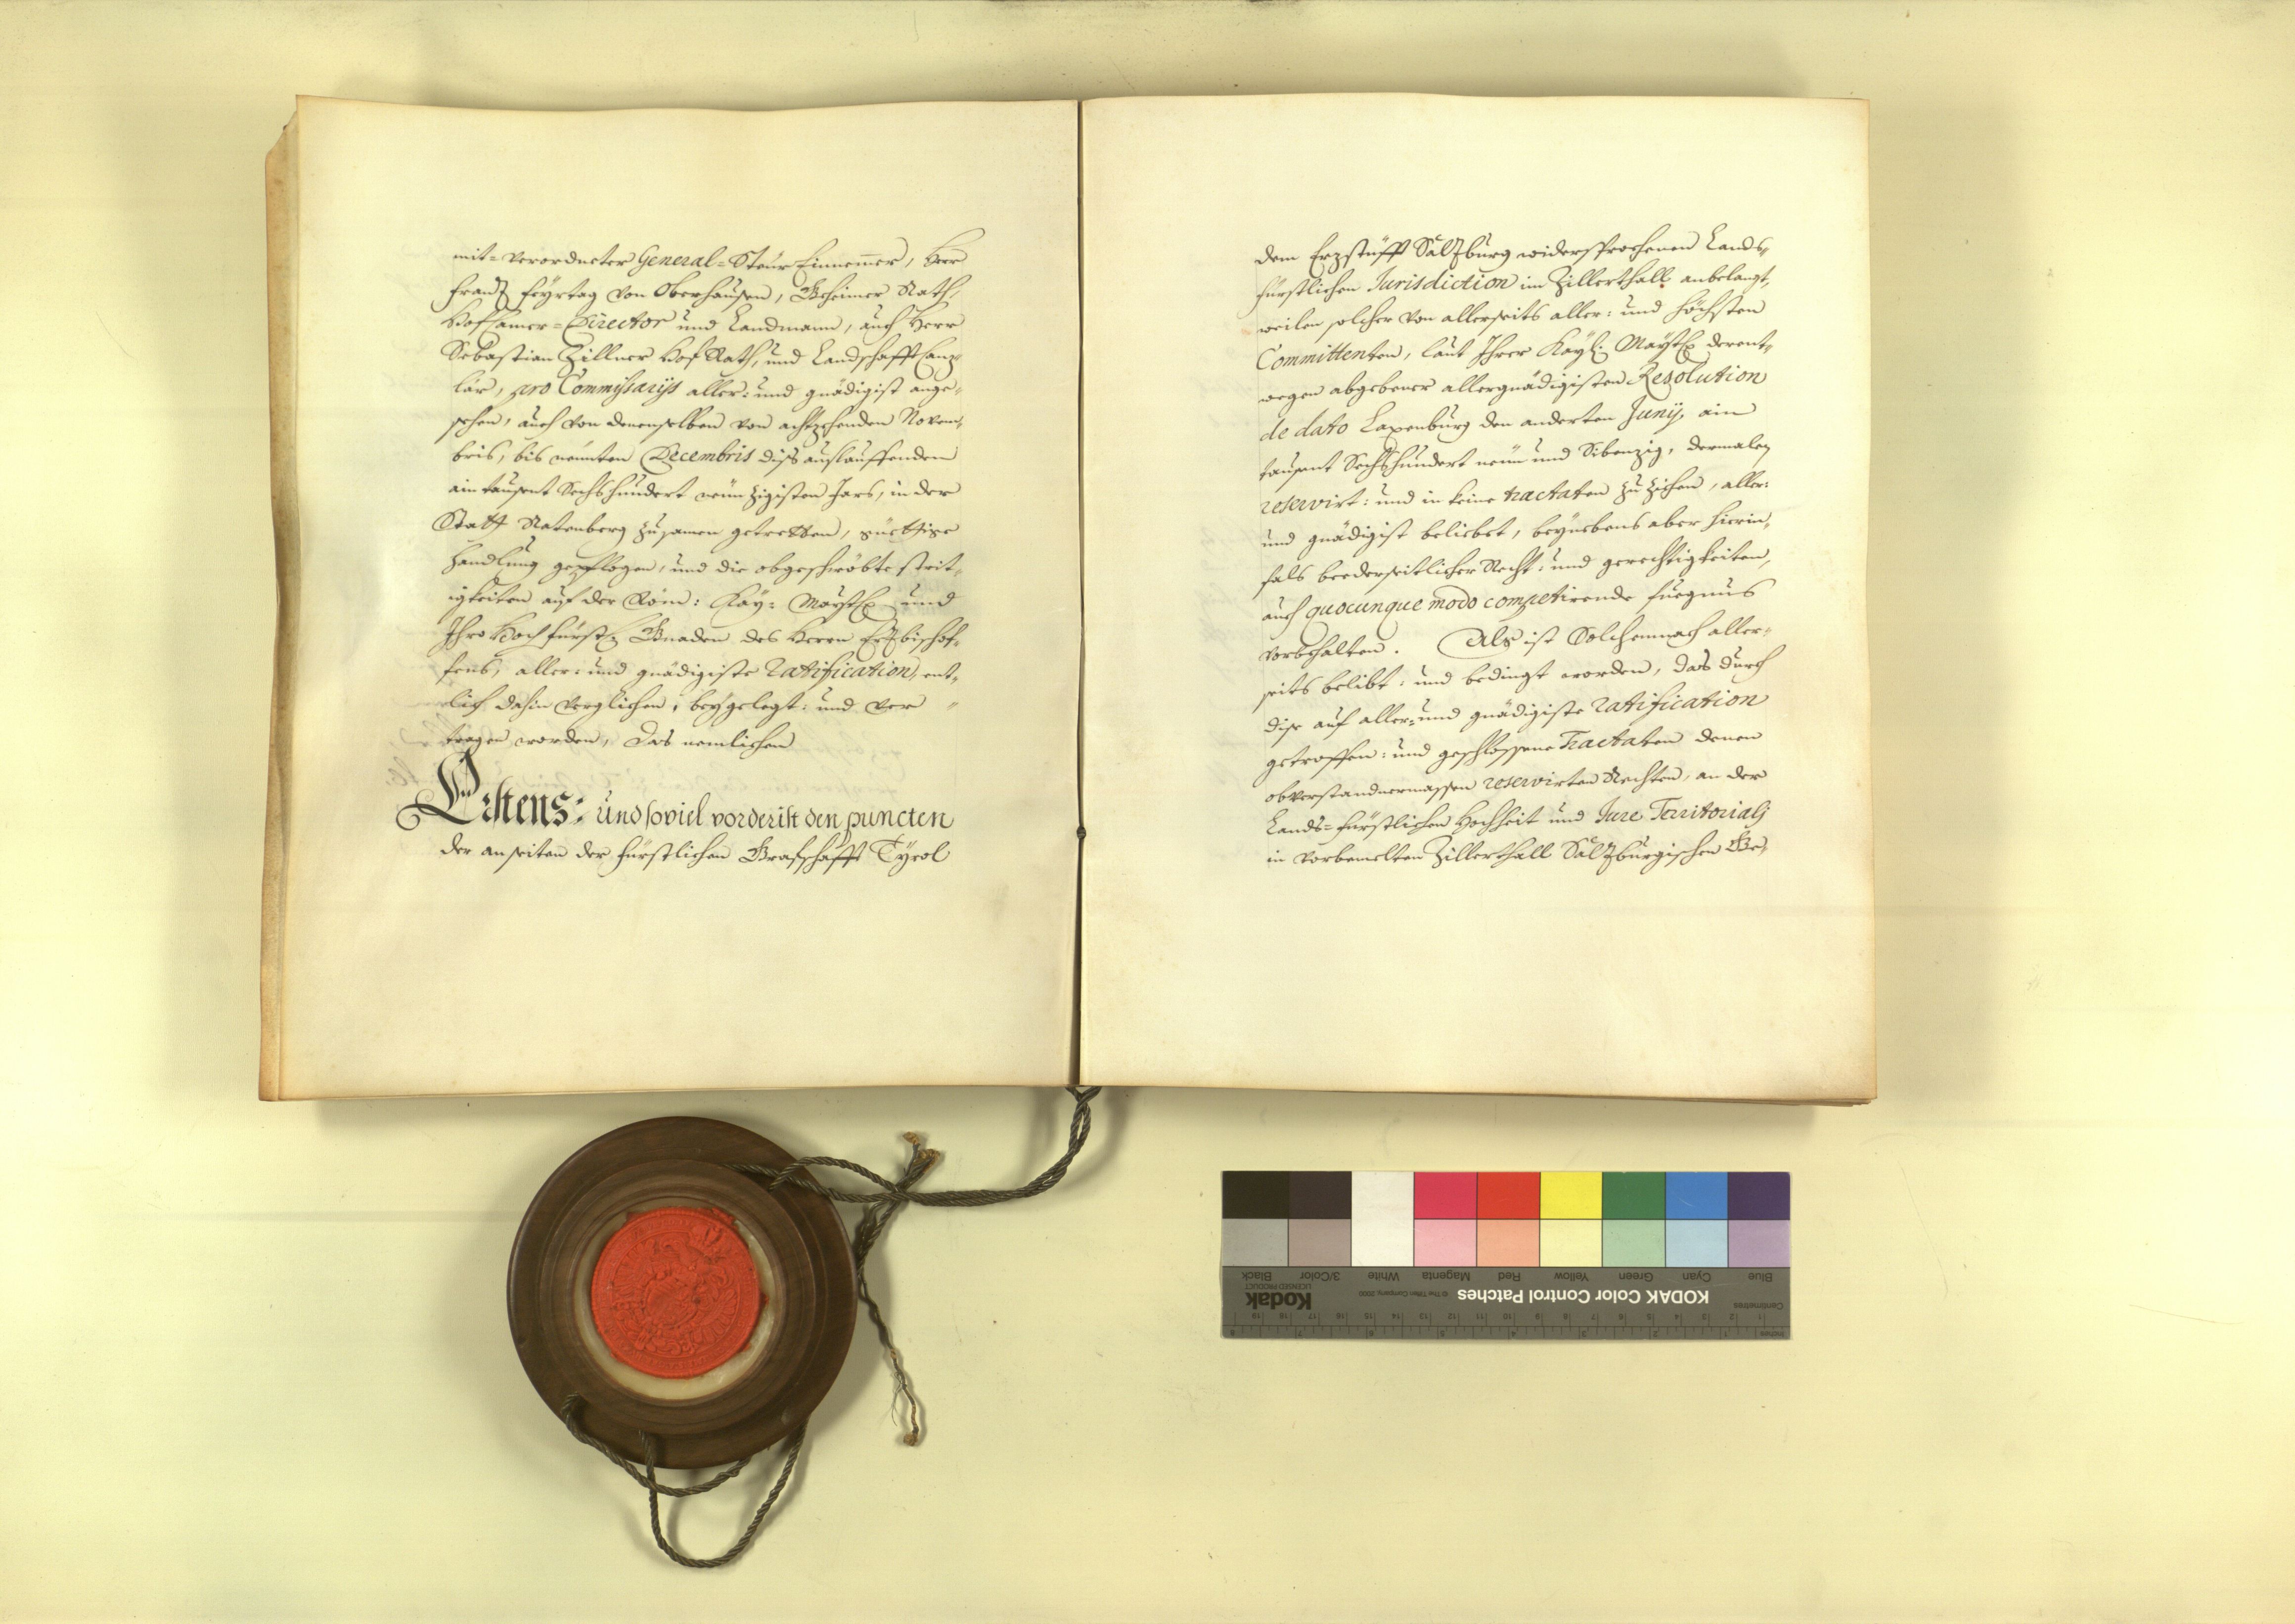 mit-verordneter General-Steur Einnem̄er, Herr
Frantz Feyrtag von Oberhausen, Geheimer Rath,
Hof Camer-Director und Landmann, auch Herr
Sebastian Zillner Hof Rath, und Landschafft Canz-
lär, pro Commissarijs aller: und gnädigist ange-
sehen, auch von denenselben von achtzehenden Novem-
bris, bis neünten Decembris diss auslauffenden
ain tausent Sechshundert neünzigisten Jars, in der
Statt Ratenberg zusamen getretten, güettige
Handlung gepflogen, und die obgeschwöbte strit-
igkeiten auf der Röm: Kay: Mayst: und
Ihro Hochfürstl: Gnaden des Herrn Erzbischof-
fens, aller: und gnädigiste Ratification, ent-
lich dahin verglichen, beygelegt: und ver-
tragen worden, Das nemlichen
Erstens: Und soviel vorderist den puncten
der anseiten der fürstlichen Grafschafft Tyrol
dem Erzstüfft Salzburg widersprochenen Lands-
fürstlichen Jurisdiction im Zillerthall anbelangt,
weilen solcher von allerseits aller: und höchsten
Committenten, laut Ihrer Kayl: Mayst: derent-
wegen abgebener allergnädigisten Resolution
de dato Laxenburg den anderten Junij, ain
tausent Sechshundert neün und Sibenzig, dermalen
reservirt: und in keine tractaten zu ziehen, aller:
und gnädigist beliebet, beynebens aber hierin-
fals beederseitlicher Recht: und gerechtigkeiten,
auch quocunque modo competirende fuegnus
vorbehalten. Als ist Solchemnach aller-
seits belibt: und bedingt worden, das durch
dise auf aller: und gnädigiste Ratification
getroffen: und geschlossene Tractaten denen
obverstandnermassen reservirten Rechten, an der
Lands-fürstlichen Hochheit und Jure Territoriali
in vorbemelten Zillerthall Salzburgischen Ge-
Blue Cyan Green Yellow Red Magenta White 3/Color Black
KODAK Color Control Patches © The Tiffen Company, 2000 Kodak
LICENSED PRODUCT
Centimetres
Inches